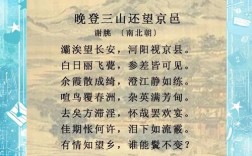 晚登三山还望京邑
谢朓 （南北朝）
灞涘望长安，河阳视京县。
白日丽飞甍，参差皆可见。
余霞散成绮，澄江静如练。
喧鸟覆春洲，杂英满芳甸。
去矣方滞淫，怀哉罢欢宴。
佳期怅何许，泪下如流霰。
有情知望乡，谁能鬒不变？